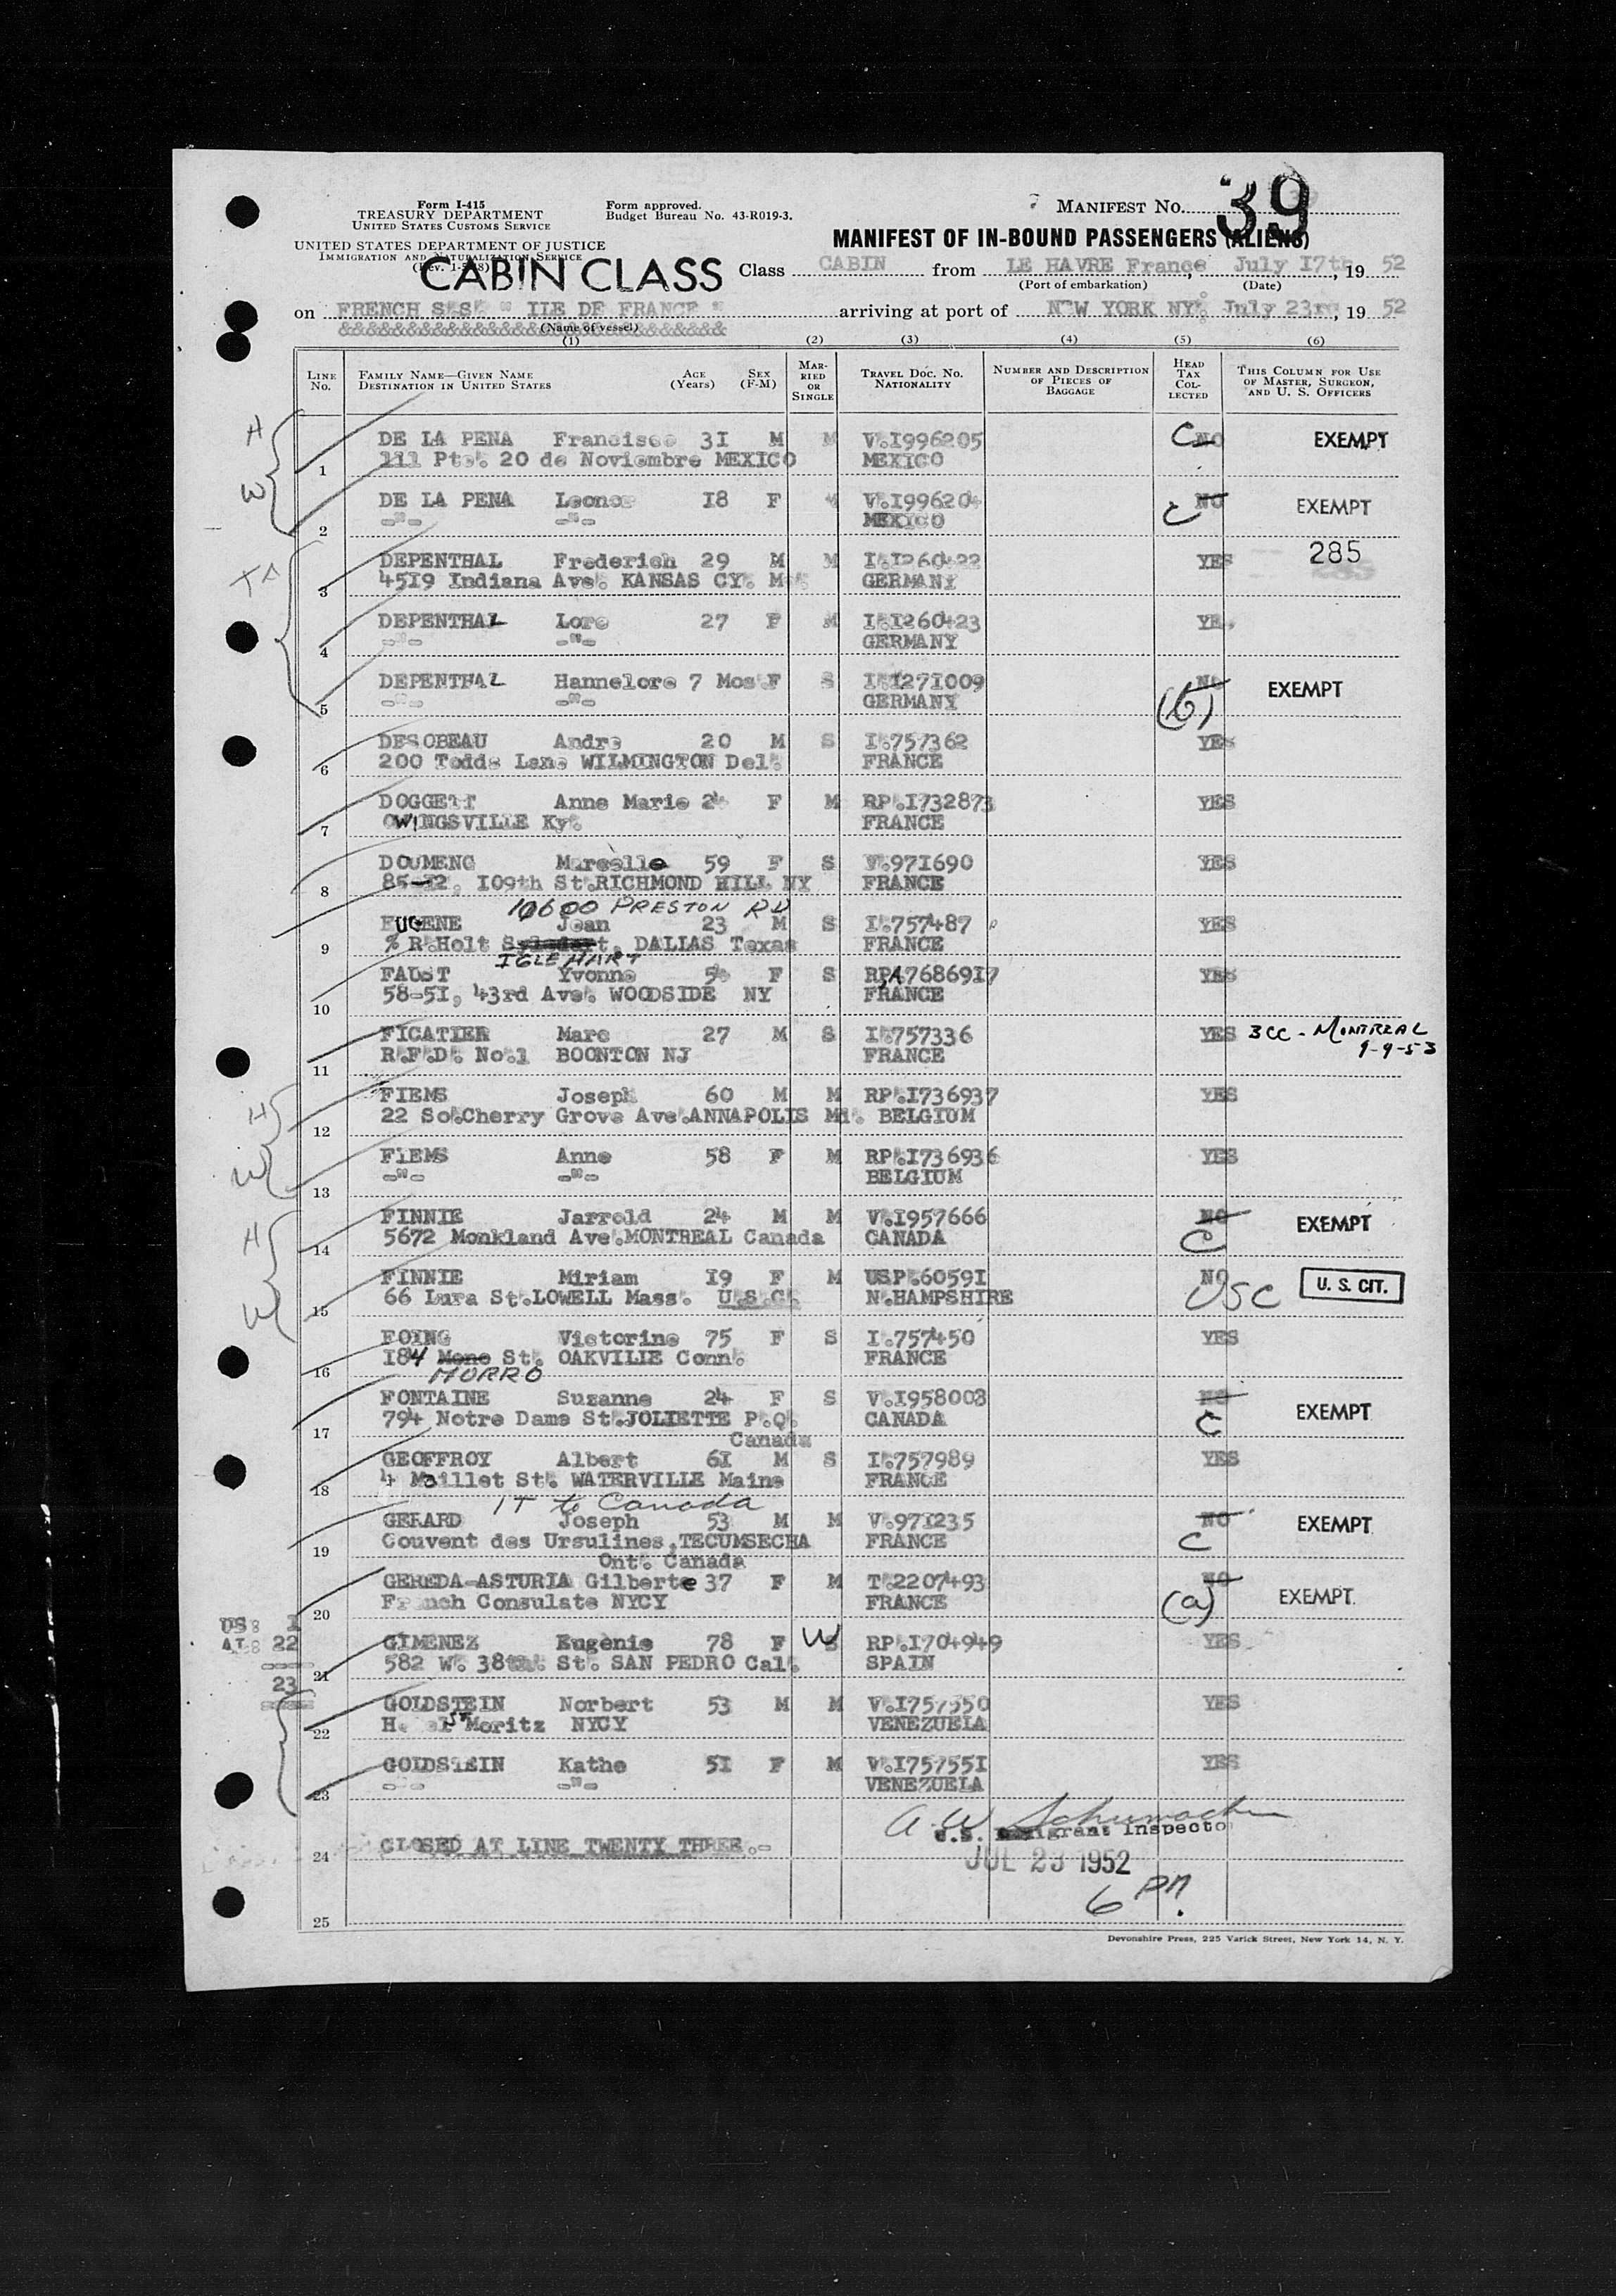 Form I-415
TREASURY DEPARTMENT
UNITED STATES CUSTOMS SERVICE
UNITED STATES DEPARTMENT OF JUSTICE
IMMIGRATION AND NATURALIZATION SERVICE
Form approved.
Budget Bureau No. 43-R019-3.
MANIFEST No. 39
MANIFEST OF IN-BOUND PASSENGERS (ALIENS)
CABIN CLASS
Class CABIN from LE HAVRE France, July 17th, 19 52
(Port of embarkation) (Date)
on FRENCH S.S. " ILE DE FRANCE " arriving at port of NEW YORK NY. July 23rd, 19 52
&&&&&&&&&&&&&&&&&&&&&&&&&&&&&&
(Name of vessel)
(1) (2) (3) (4) (5) (6)
LINE No. FAMILY NAME—GIVEN NAME DESTINATION IN UNITED STATES AGE (Years) SEX (F-M) MARRIED OR SINGLE TRAVEL DOC. NO. NATIONALITY NUMBER AND DESCRIPTION OF PIECES OF BAGGAGE HEAD TAX COLLECTED THIS COLUMN FOR USE OF MASTER, SURGEON, AND U. S. OFFICERS
H DE LA PENA Francisco 3I M M V.I996205 C NO EXEMPT
1 111 Pte. 20 de Noviembre MEXICO MEXICO
W DE LA PENA Leonor I8 F V.I996204 C NO EXEMPT
2 -"- -"- MEXICO
DEPENTHAL Frederich 29 M M I.I260422 YES 285
3 45I9 Indiana Ave. KANSAS CY. GERMANY
DEPENTHAL Lore 27 F M I.I260423 YES
4 -"- -"- GERMANY
DEPENTHAL Hannelore 7 Mos F S I.I27I009 NO (b) EXEMPT
5 -"- -"- GERMANY
DESOBEAU Andre 20 M S I.757362 YES
6 200 Todds Lane WILMINGTON Del. FRANCE
DOGGETT Anne Marie 24 F M RP.I732873 YES
7 OWINGSVILLE Ky. FRANCE
DOUMENG Marcelle 59 F S V.97I690 YES
8 85-I2, I09th St.RICHMOND HILL NY FRANCE
10600 PRESTON RD
EUGENE Jean 23 M S I.757487 YES
9 % R.Holt DALLAS Texas FRANCE
IGLEHART
FAUST Yvonne F S 7686917 YES
10 58-5I, 43rd Ave. WOODSIDE NY FRANCE
FICATIER Marc 27 M S I.757336 YES 3CC - MONTREAL
11 R.F.D. No.1 BOONTON NJ FRANCE 9-9-53
H FIEMS Joseph 60 M M RP.I736937 YES
12 22 So.Cherry Grove Ave.ANNAPOLIS Md. BELGIUM
W FIEMS Anne 58 F M RP.I736936 YES
13 -"- -"- BELGIUM
H FINNIE Jarrold 24 M M V.I957666 NO EXEMPT
14 5672 Monkland Ave.MONTREAL Canada CANADA C
W FINNIE Miriam I9 F M USP.6059I NO USC U. S. CIT.
15 66 Lura St.LOWELL Mass. U.S.C. N.HAMPSHIRE
FOING Victorine 75 F S I.757450 YES
16 I84 Mono St. OAKVILLE Conn. FRANCE
MORRO
FONTAINE Suzanne 24 F S V.I958003 NO EXEMPT
17 794 Notre Dame St.JOLIETTE P.Q. CANADA C
Canada
GEOFFROY Albert 6I M S I.757989 YES
18 4 Maillet St. WATERVILLE Maine FRANCE
IT to Canada
GERARD Joseph 53 M M V.97I235 NO EXEMPT
19 Couvent des Ursulines,TECUMSECHA FRANCE C
Ont. Canada
GEREDA-ASTURIA Gilberte 37 F M T.2207493 NO EXEMPT
20 French Consulate NYCY FRANCE (a)
US: 1
AL: 22
23
GIMENEZ Eugènie 78 F W S RP.I704949 YES
21 582 W. 38th. St. SAN PEDRO Cal. SPAIN
GOLDSTEIN Norbert 53 M M V.I757550 YES
22 Hotel St Moritz NYCY VENEZUELA
GOLDSTEIN Kathe 5I F M V.I75755I YES
23 -"- -"- VENEZUELA
A W Schumacher
U.S. Immigrant Inspector
24 CLOSED AT LINE TWENTY THREE.-
JUL 23 1952
6 PM.
25
Devonshire Press, 225 Varick Street, New York 14, N. Y.